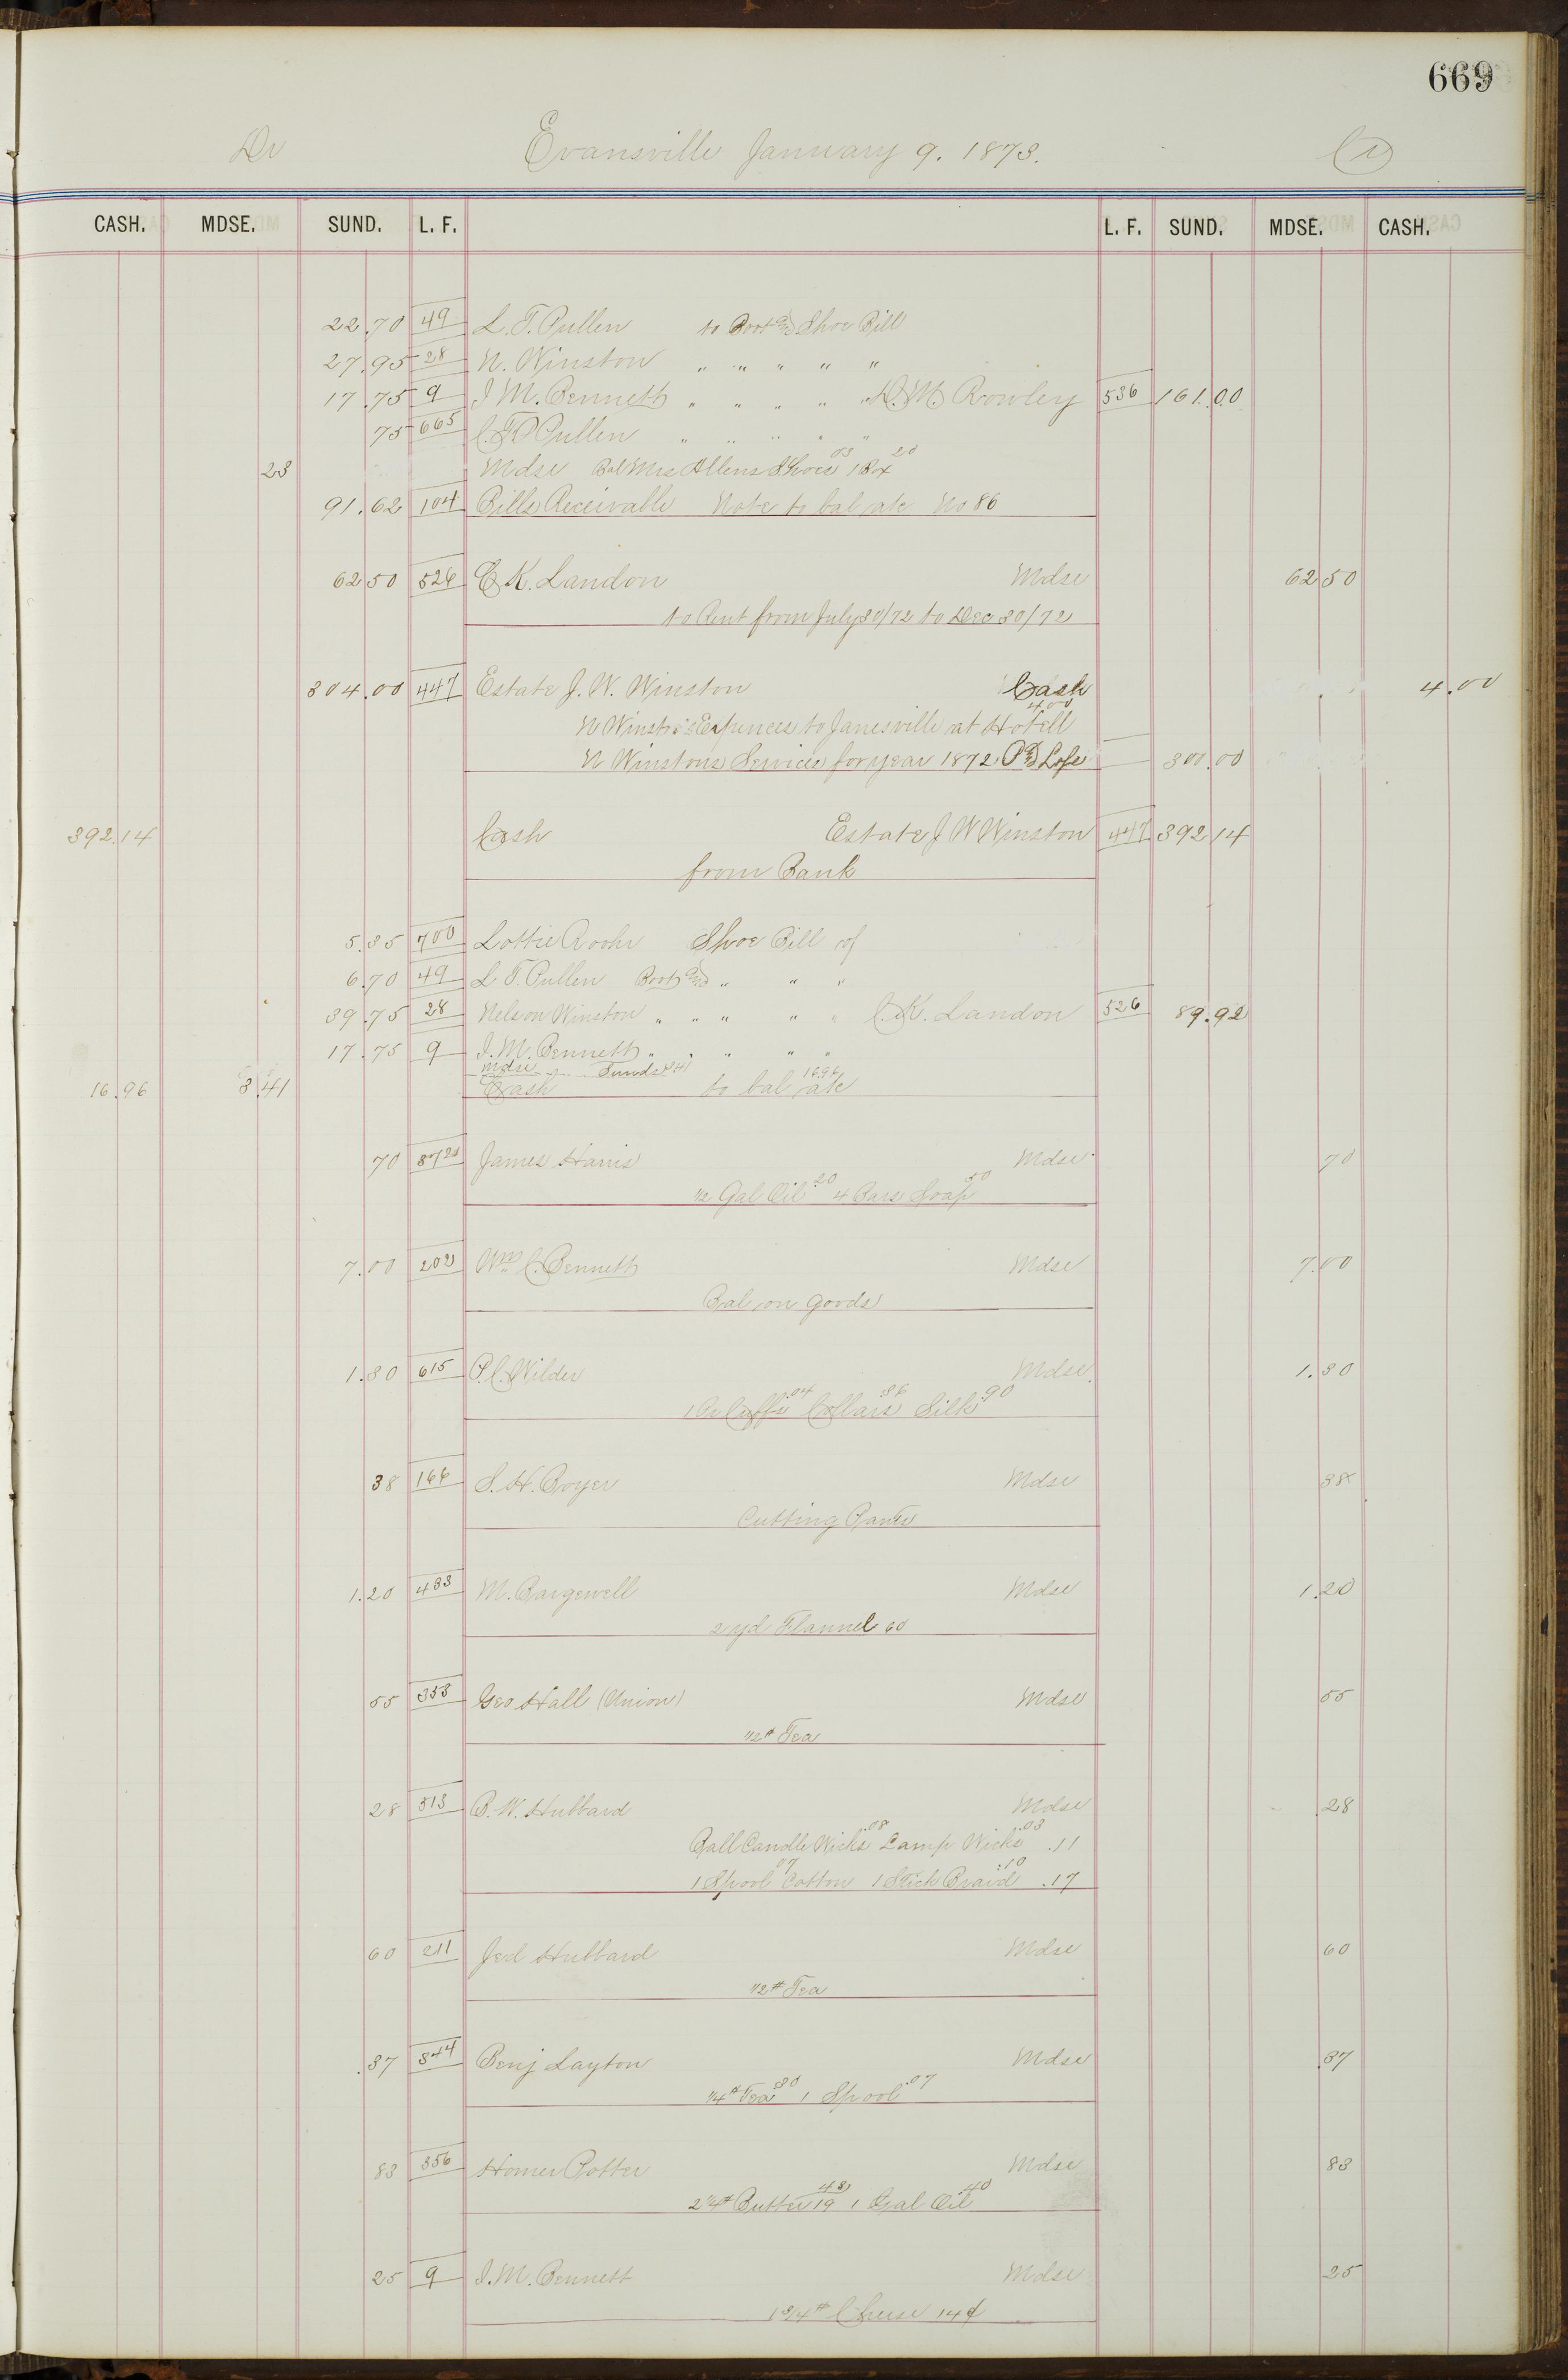 669
Dr Evansville January 9. 1873. Cr
CASH. MDSE. SUND. L. F. L. F. SUND. MDSE. CASH.
22.70 49 L. T. Pullen to Boot and Shoe Bill
27.95 28 N. Winston " " " " "
17.75 9 I M. Bennett " " " " " D. M. Rowley 536 161.00
75 665 C. F. P Pullen " " " " "
23 Mdse Bal Mrs Allens Shoes 03 1 Bx 20
91.62 104 Bills Receivable Note to bal a/c No 86
62 50 526 C K. Landon Mdse 62 50
to Rent from July 30/72 to Dec 30/72
304.00 447 Estate J. W. Winston Cash 4.00
N Winstons Expences to Janesville at Hotell 4.00
N Winstons Services for year 1872 300.00
392.14 Cash Estate J W Winston 447 392 14
from Bank
5.35 700 Lottie Shoe Bill of
6.70 49 L T. Pullen Boot and " " "
39.75 28 Nelson Winston " " " " " C. K. Landon 526 89.92
17.75 9 I. M. Bennett " " " " "
Mdse Sunds 341
16.96 3.41 Cash to bal a/c 16.96
70 872 James Harris Mdse 70
1/2 Gal Oil .20 4 Bars Soap 50
7.00 202 Wm C. Bennett Mdse 7.00
Bal on goods
1.30 615 P. C. Wilder Mdse 1.30
1 Pr Cuffs .04 Collars .36 Silk .90
38 166 S. H. Boyer Mdse 38
Cutting Pants
1.20 483 M. Bargewell Mdse 1.20
2 yd Flannel 60
55 353 Geo Hall (Union) Mdse 55
1/2# Tea
28 513 B. W. Hubbard Mdse 28
Ball Candle Wicks .08 Lamp Wicks .03 .11
1 Spool Cotton 07 1 Stick Braid .10 .17
60 211 Jed Hubbard Mdse 60
1/2# Tea
.37 844 Benj Layton Mdse .37
1/4# Tea .30 1 Spool .07
83 356 Homer Potter Mdse 83
2 1/4# Butter 19 43 1 Gal Oil 40
25 9 I. M. Bennett Mdse 25
1 3/4# Cheese 14¢